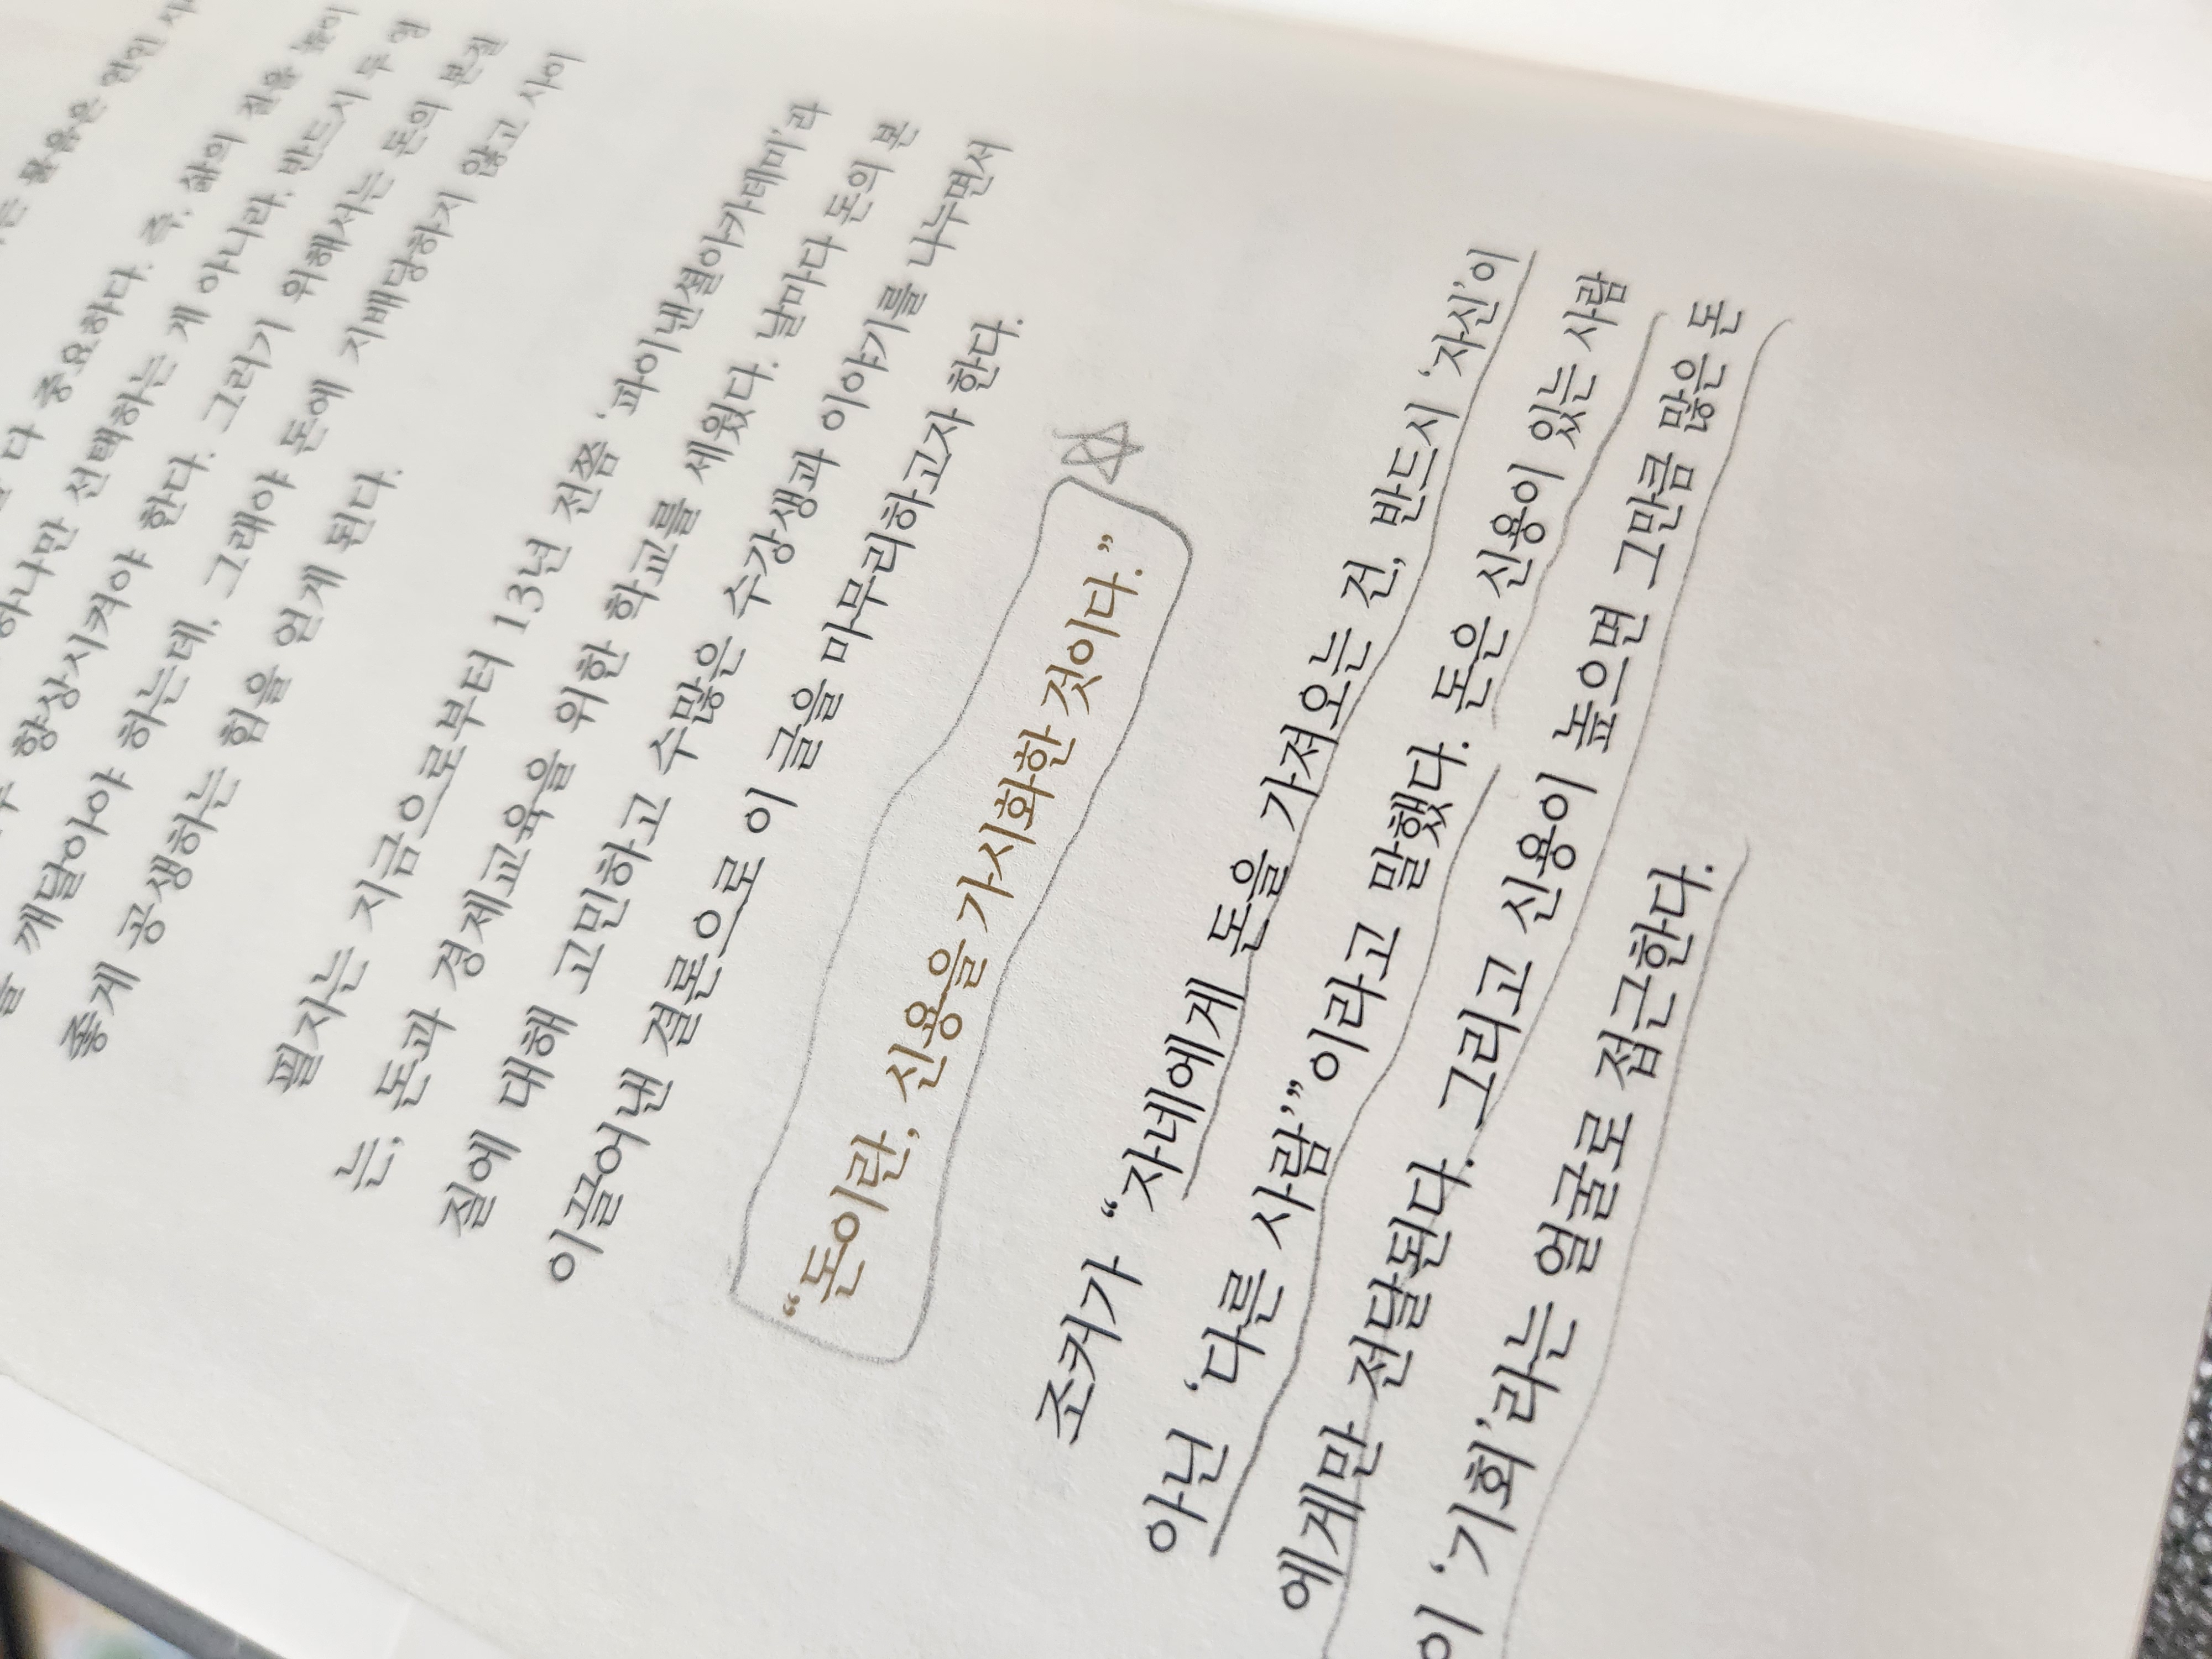 중요하다. 즉, 삶의 질을 높이
하나만 선택하는 게 아니라, 반드시 두
향상시켜야 한다. 그러기 위해서는 돈의 본질
깨달아야 하는데, 그래야 돈에 지배당하지 않고 사이
좋게 공생하는 힘을 얻게 된다.
필자는 지금으로부터 13년 전쯤 ‘파이낸셜아카데미’라
는, 돈과 경제교육을 위한 학교를 세웠다. 날마다 돈의 본
질에 대해 고민하고 수많은 수강생과 이야기를 나누면서
이끌어낸 결론으로 이 글을 마무리하고자 한다.
“돈이란, 신용을 가시화한 것이다.”
조커가 “자네에게 돈을 가져오는 건, 반드시 ‘자신’이
아닌 ‘다른 사람’”이라고 말했다. 돈은 신용이 있는 사람
에게만 전달된다. 그리고 신용이 높으면 그만큼 많은 돈
이 ‘기회’라는 얼굴로 접근한다.